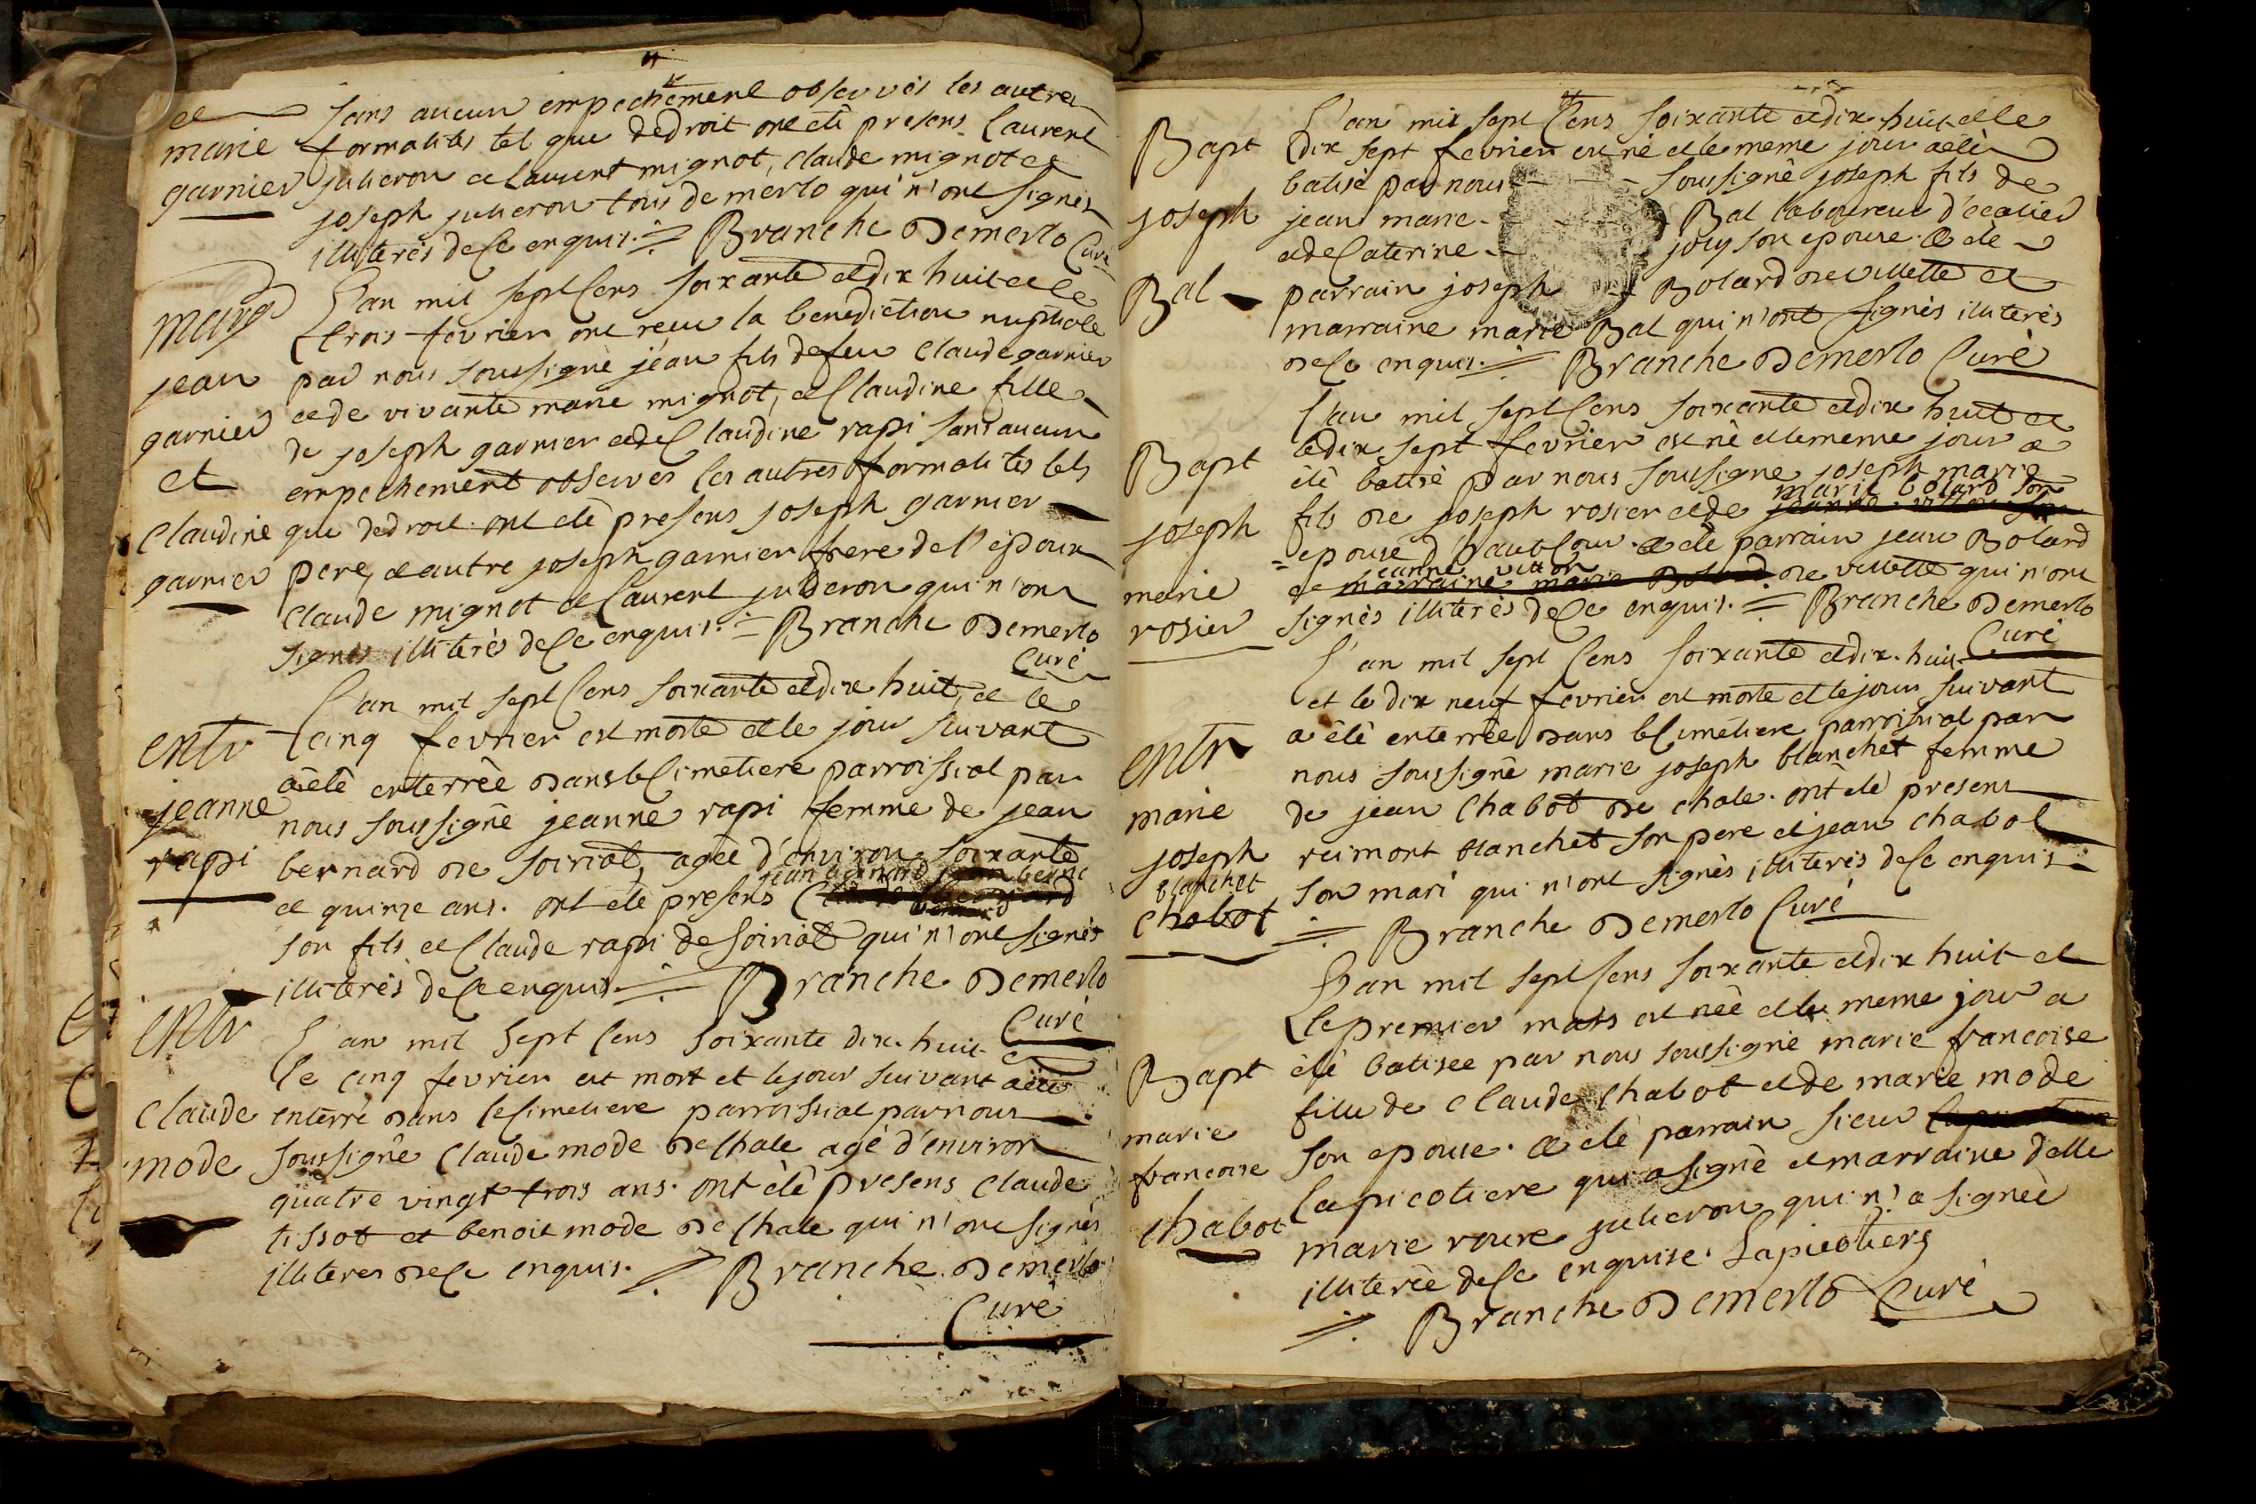 et
marie
garnier
sans aucun empechement observés les autres
formalités tel que dedroit ont eté presens laurent
julieron et laurent mignot, claude mignot et
joseph julieron tous de merlo qui n'ont signés
illiterés dece enquis. Branche Demerlo Curé
marg
jean
garnier
et
claudine
garnier
L'an mil sept cens soixante et dix huit et le
trois fevrier ont reçu la benediction nuptiale
par nous soussigné jean fils defeu claude garnier
et de vivante marie mignot, et claudine fille
de joseph garnier et de claudine rapi sans aucun
empechement observés les autres formalités tels
que dedroit ont eté presens joseph garnier
pere, et autre joseph garnier frere de l'époux
claude mignot et laurent julieron qui n'ont
signés illiterés dece enquis. Branche Demerlo
Curé
entr
jeanne
rapi
L'an mil sept cens soixante et dix huit, et le
cinq fevrier est morte et le jour suivant
a eté enterrée dans le cimetiere parroissial par
nous soussigné jeanne rapi femme de jean
bernard de soiriat, agée d'environ soixante
jean bernard
et quinze ans. ont eté presens
son fils et claude rapi de soiriat qui n'ont signés
illiterés dece enquis. Branche Demerlo
Curé
entr
claude
mode
L'an mil sept cens soixante dix. huit et
le cinq fevrier est mort et le jour suivant a eté
enterré dans le cimetiere parroissial par nous
soussigné claude mode de chale agé d'environ
quatre vingt trois ans. ont été presens claude
tissot et benoit mode de chale qui n'ont signés
illiteres dece enquis. Branche Demerlo
Curé
Bapt
joseph
Bal
L'an mil sept cens soixante et dix. huit et le
dix sept fevrier est né et le meme jour a eté
batisé par nous soussigné joseph fils de
jean marie Bal laboureur d'ecotier
et de Caterine jouy son epouse. a eté
parrain joseph Bolard de villette et
marraine marie Bal qui n'ont signés illiterés
dece enquis. Branche Demerlo Curé
Bapt
joseph
marie
rosier
L'an mil sept cens soixante et dix huit et
le dix sept fevrier est né et le meme jour a
été batisé par nous soussigné joseph marie
marie bolard son
fils de joseph rosier et de
epouse d'hautecour. a eté parrain jean Bolard
jeanne vitton
et marraine marie Bolard de villette qui n'ont
signés illiterés dece enquis. Branche Demerlo
Curé
entr
marie
joseph
blanchet
chabot
L'an mil sept cens soixante et dix. huit
et le dix neuf fevrier est morte et le jour suivant
a été enterrée dans le cimetiere parroissial par
nous soussigné marie joseph blanchet femme
de jean chabot de chale. ont eté presens
reimont blanchet son pere et jean chabot
son mari qui n'ont signés illiterés dece enquis
Branche Demerlo Curé
Bapt
marie
francoise
chabot
L'an mil sept cens soixante et dix huit et
le premier mars est née et le meme jour a
été batisee par nous soussigné marie francoise
fille de claude chabot et de marie mode
son epouse. a eté parrain sieur
lapicotiere qui a signé et marraine delle
marie roux julieron qui n'a signée
illiterée dece enquise. Lapicotiere
Branche Demerlo Curé